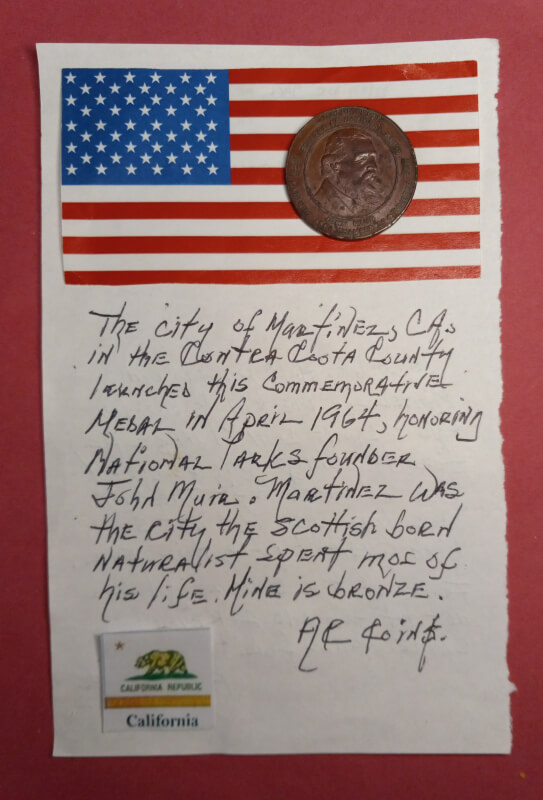 The city of Martinez, CA,
in the Contra Costa County
launched this commemorative
Medal in April 1964, honoring
National Parks founder
John Muir. Martinez was
the city the Scottish born
Naturalist spent mos of
his life. Mine is bronze.
AR Coin$.
CALIFORNIA REPUBLIC
California